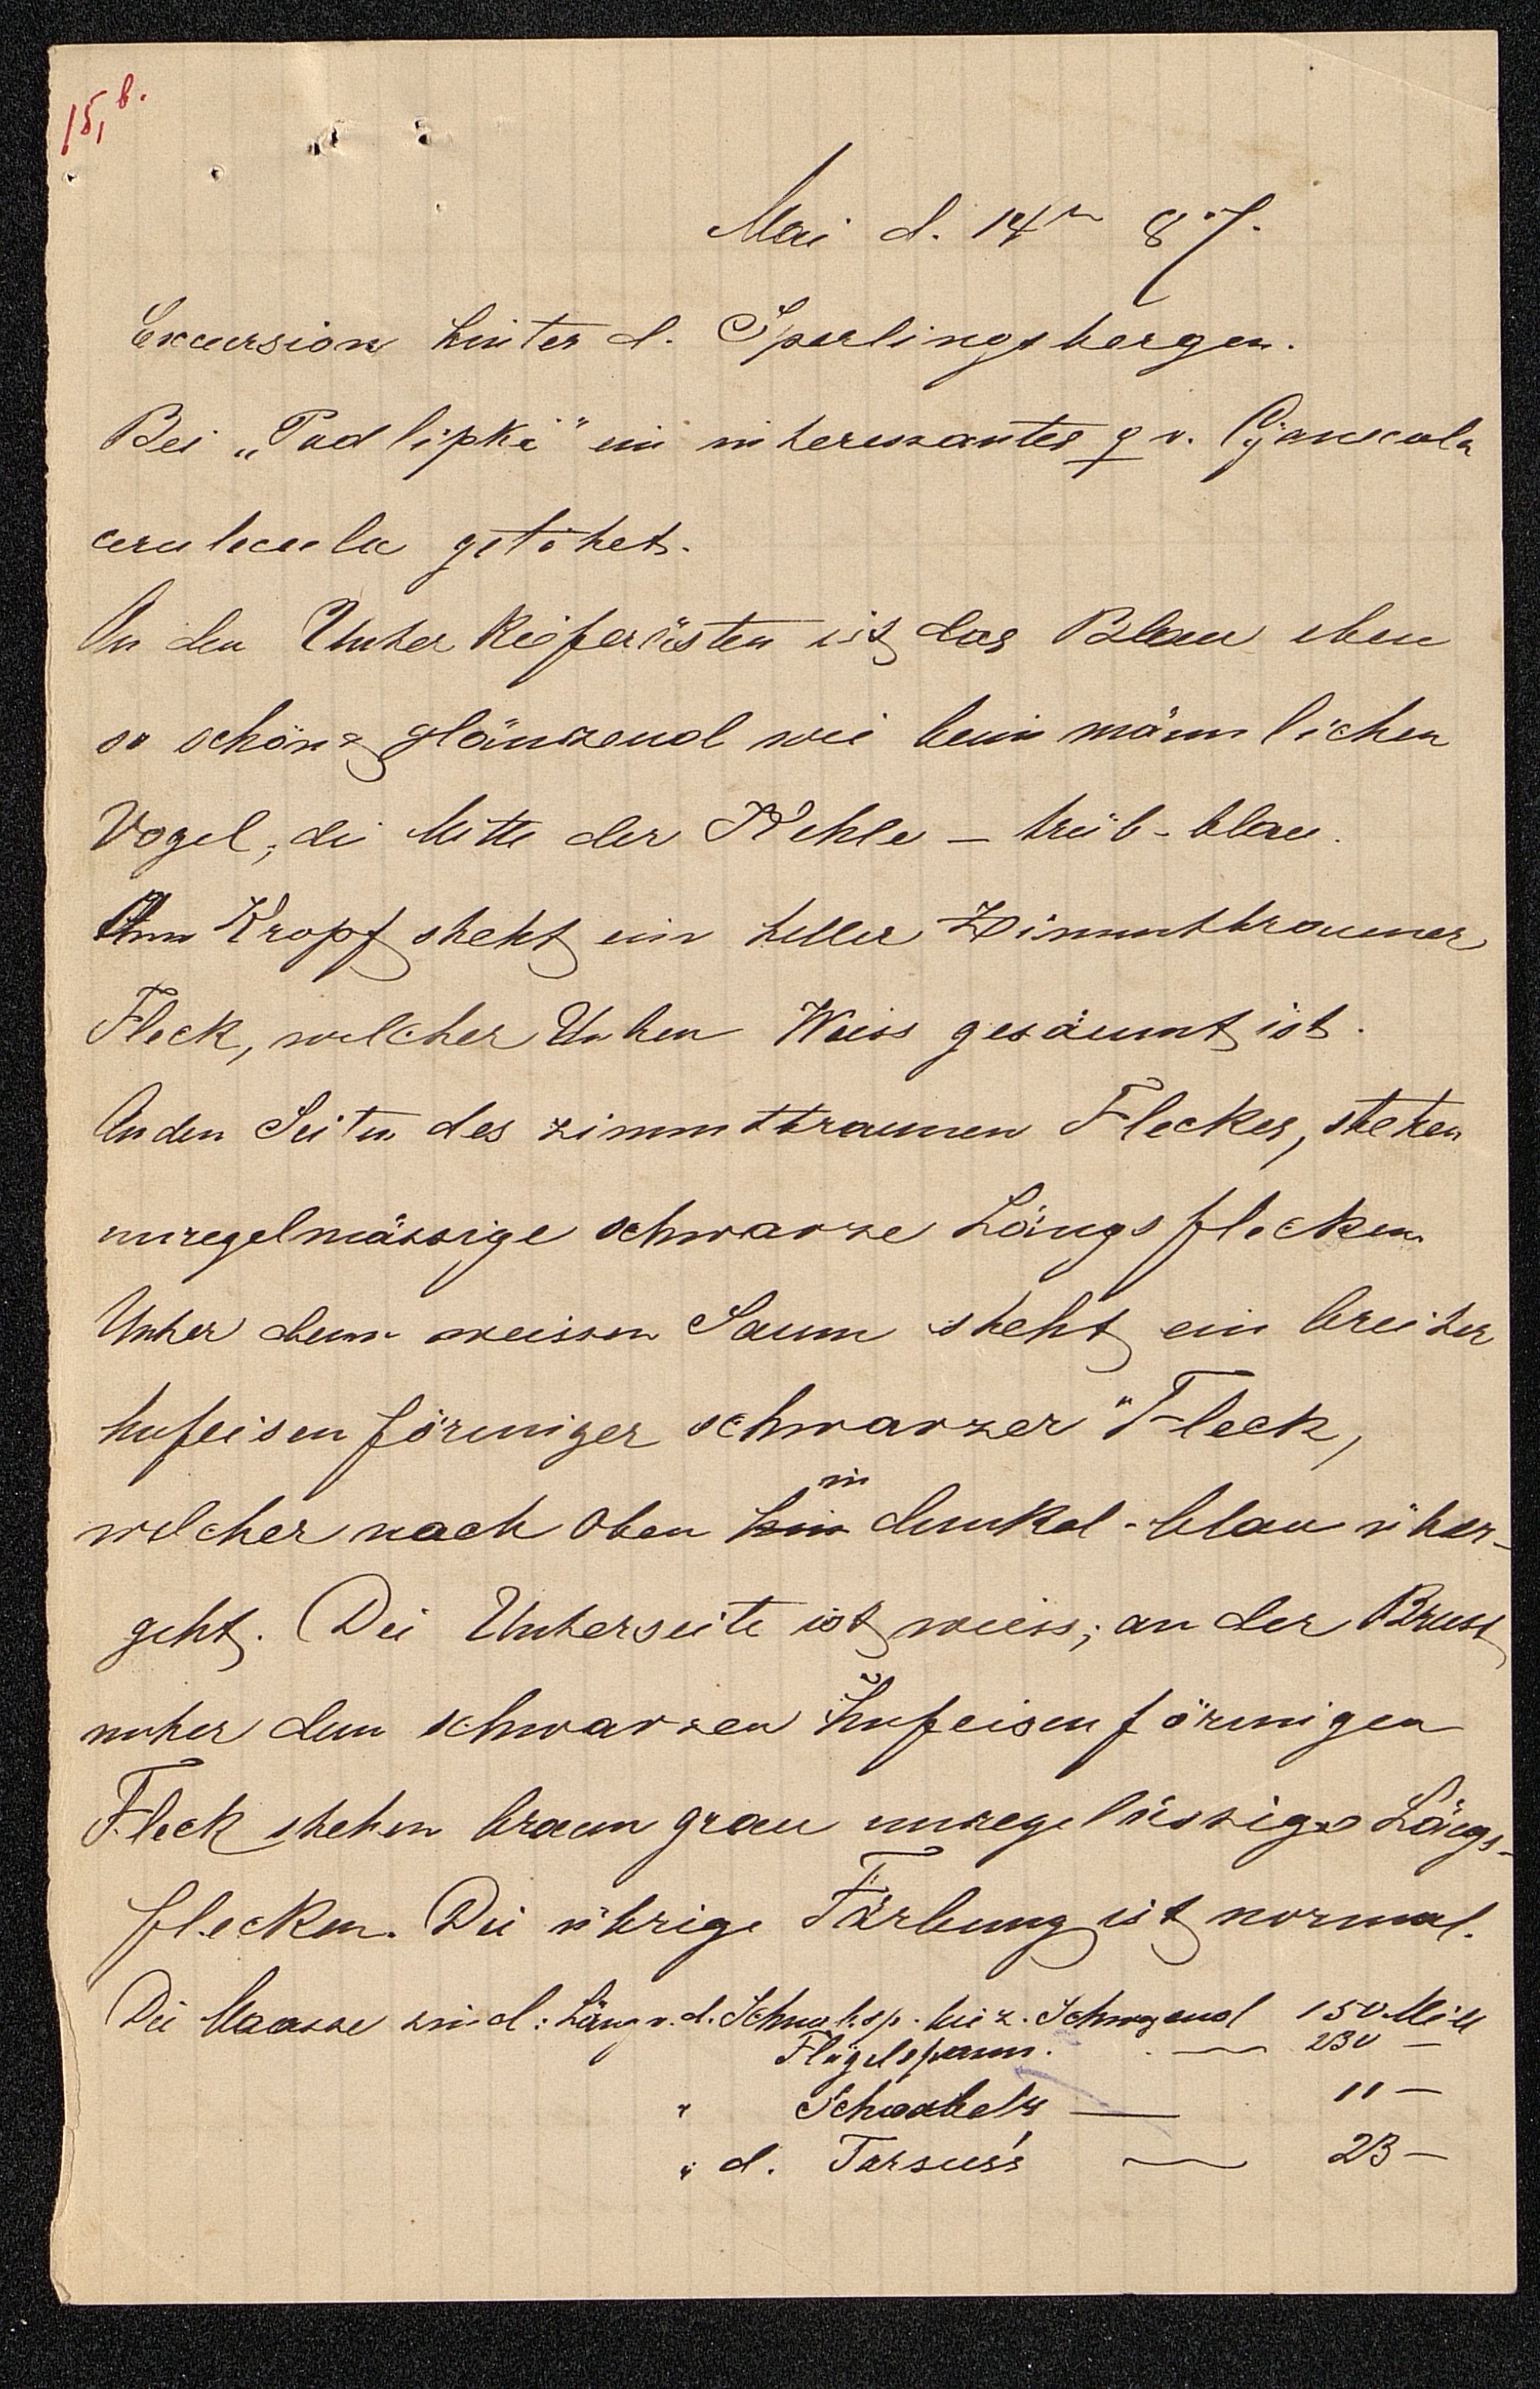 15, b.
Mai d. 14n 87.
Excursion hinter d. Sperlingsbergen.
Bei „Podlipki" ein interessantes ♀ v. Cyanecula
cerulecula getötet.
An den Unterkieferästen ist das Blau eben
so schön & glänzend wie beim männlichen
Vogel, die Mitte der Kehle – trüb-blau.
Am Kropf steht ein heller Zimmtbrauner
Fleck, welcher Unten Weiss gesäumt ist.
An den Seiten des zimmtbraunen Fleckes, stehen
unregelmässige schwarze Längsflecken.
Unter dem weissen Saum steht ein breiter
hufeisenförmiger schwarzer Fleck,
welcher nach Oben in dunkel-blau über-
geht. Die Unterseite ist weiss; an der Brust
unter dem schwarzen hufeisenförmigen
Fleck stehen braun grau unregelässige Längs-
flecken. Die übrige Färbung ist normal.
Die Maasse sind: Läng v. d. Schnabsp. bis z. Schwzend 150 Mill
Flügelspann. — 230 —
" Schnabels — 11 —
" d. Tarsus's — 23 —